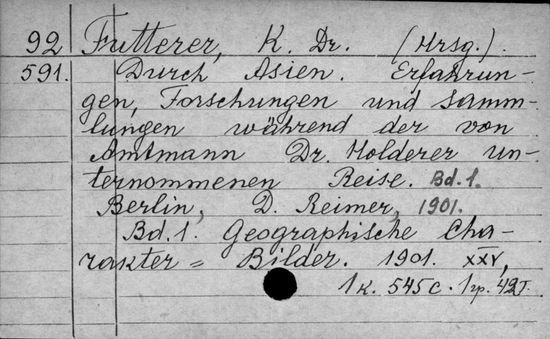 92 Futterer, K. Dr. (Hrsg.).
591. Durch Asien. Erfahrun-
gen, Forschungen und Samm-
lungen während der von
Amtmann Dr. Holderer un-
ternommenen Reise. Bd. 1.
Berlin, D. Reimer, 1901.
Bd. 1. Geographische Cha-
rakter = Bilder. 1901. XXV,
1 к. 545 с. 1 гр. 42т.